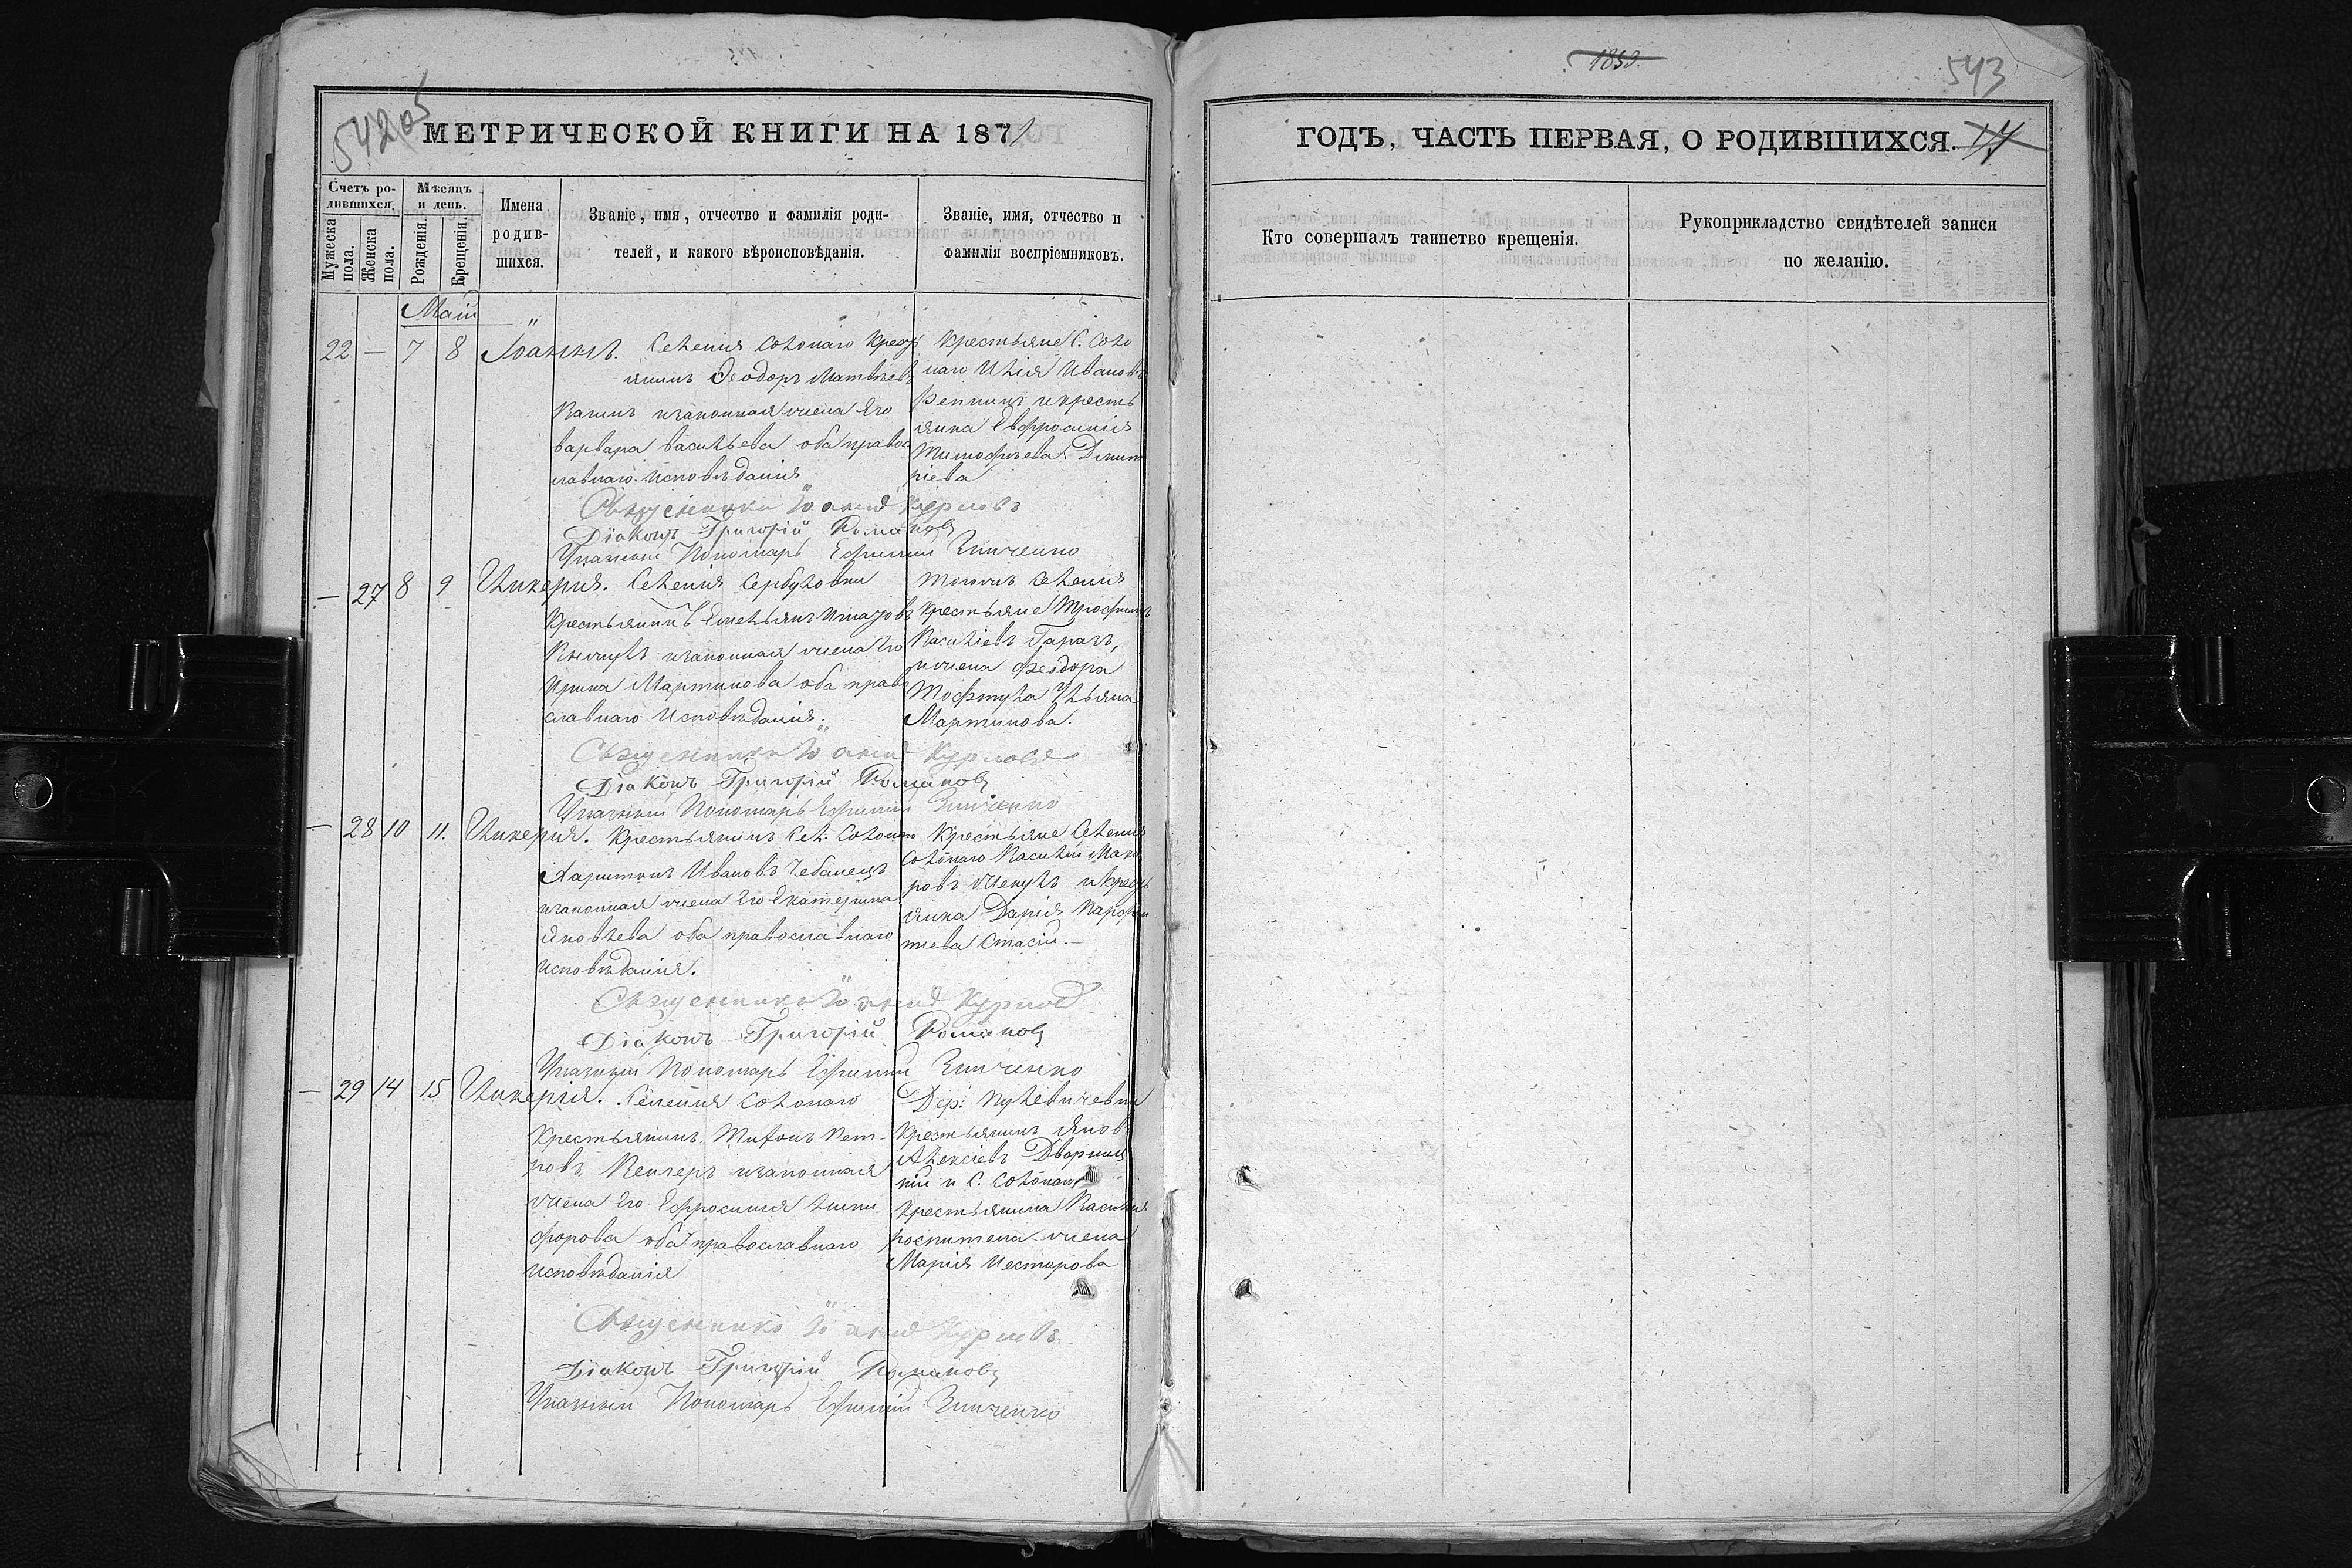 542 об
МЕТРИЧЕСКОЙ КНИГИ НА 1871
Счетъ ро-
дившихся.
Мужеска
пола.
Женска
пола.
Мѣсяцъ
и день.
Рожденія.
Крещенія.
Имена
родив-
шихся.
Званіе, имя, отчество и фамилія роди-
телей, и какого вѣроисповѣданія.
Званіе, имя, отчество и
фамилія воспріемниковъ.
Маій
22 — 7 8 Іоаннъ. Селенія Солонаго Крест
янинъ Ѳеодоръ Матвѣевъ
изаконная жена Его
варвара васильева оба правос
лавнаго исповѣданія
Крестьяне С. Соло
наго Илія Ивановъ
икресть
янка Евфросинія
Тимофѣева Димит
ріева
Священникъ Іоаннъ Курловъ
Діаконъ Григорій Романовъ
Указный Пономарь Ефимій Зинченко
— 27 8 9 Гликерия. Селенія Сербуловки
Крестьянинъ Емельянъ
изаконная жена Его
Ирина Мартинова оба право
славнаго исповѣданія.
тогожъ Селенія
крестьяне Трофимъ
Василіевъ Гарачъ,
ижена Феодора
Ульяна
Мартинова.
Священникъ Іоаннъ Курловъ
Діаконъ Григорій Романовъ
Указный Пономарь Ефимій Зинченко
— 28 10 11. Гликерия. Крестьянинъ Сел. Солонаго
Харитонъ Ивановъ Чебанецъ
изаконная жена Его Екатерина
Яковлева оба православнаго
исповѣданія.
Крестьяне Селенія
Солонаго Василій Мака
ровъ икрест
янка Дарія Парфен
тиева Стасій.—
Священникъ Іоаннъ Курловъ
Діаконъ Григорій Романовъ
Указный Пономарь Ефимій Зинченко
— 29 14 15 Гликерія. Селенія Солонаго
Крестьянинъ Пет-
ровъ изаконная
жена Его Ефросинія Ники
форова оба православнаго
исповѣданія
Дер:
Крестьянинъ Яковъ
Алексіевъ Дворниц
кій и С. Солонаго
крестьянина Василія
жена
Марія Нестерова
Священникъ Іоаннъ Курловъ
Діаконъ Григорій Романовъ
Указный Пономарь Ефимій Зинченко
543
ГОДЪ, ЧАСТЬ ПЕРВАЯ, О РОДИВШИХСЯ.
Кто совершалъ таинство крещенія.
Рукоприкладство свидѣтелей записи
по желанію.